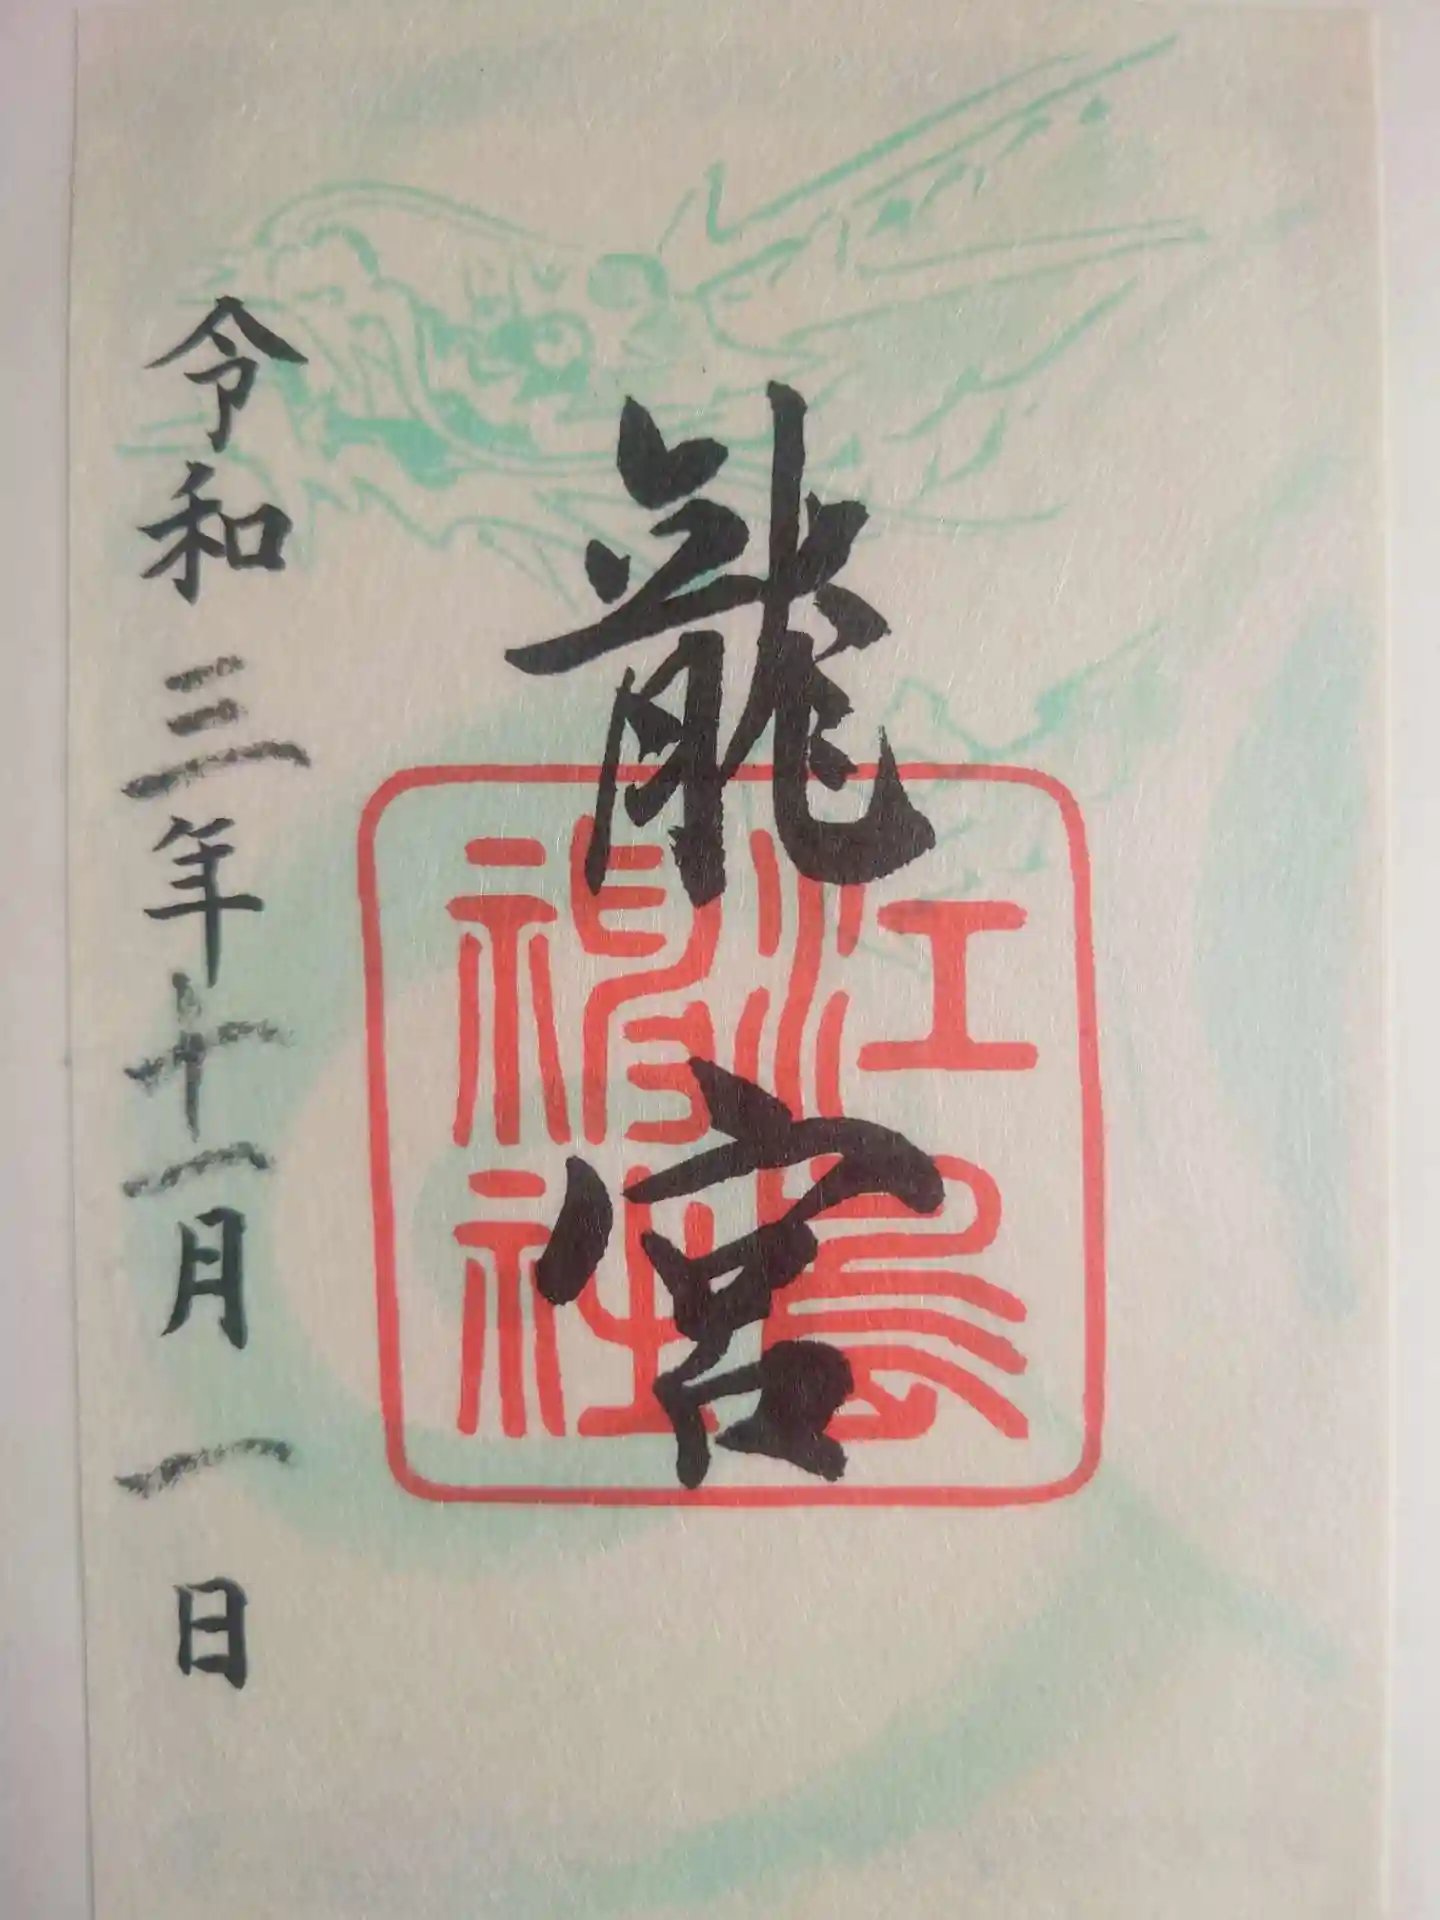 龍宮
江島
神社
令和三年十一月一日